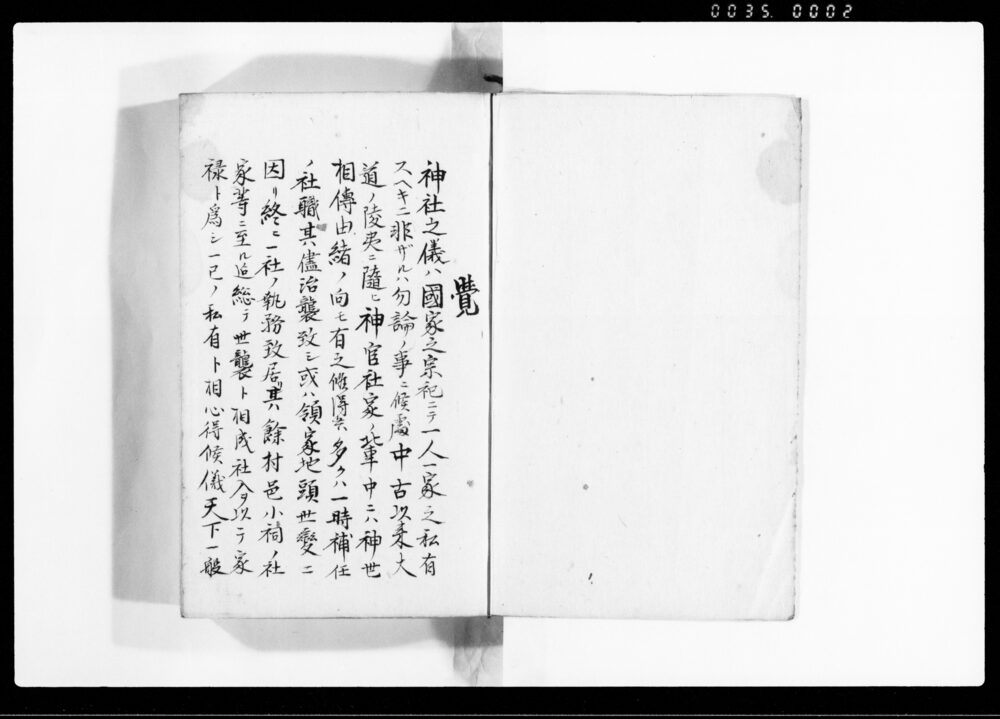 0035. 0002
覺
神社之儀ハ國家之宗祀ニテ一人一家之私有
スヘキニ非ザルハ勿論ノ事ニ候處中古以来大
道ノ陵夷ニ隨ヒ神官社家ノ輩中ニハ神世
相傳由緒ノ向モ有之候得共多クハ一時補任
ノ社職其儘沿襲致シ或ハ領家地頭世變ニ
因リ終ニ一社ノ執務致居其ハ餘村邑小祠ノ社
家等ニ至ル迠総テ世襲ト相成社入ヲ以テ家
禄ト為シ一己ノ私有ト相心得候儀天下一般